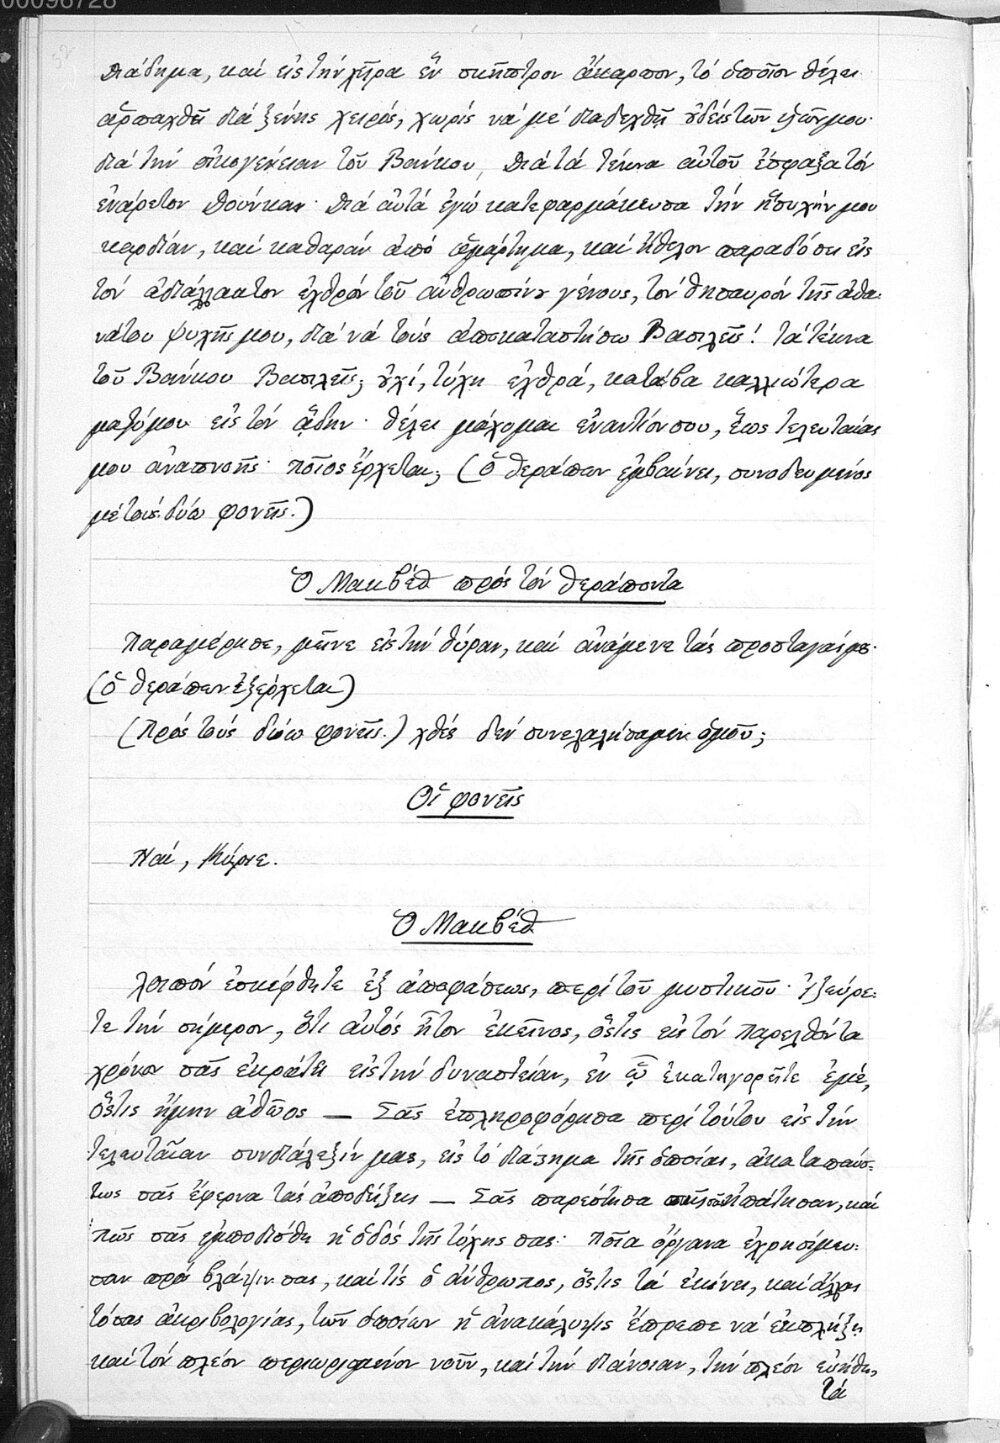 00096728
διάδημα, καί εἰς τήν χεῖρα ἕν σκῆπτρον ἄκαρπον, τό ὁποῖον θέλει
ἁρπαχθῆ διά ξένης χειρός, χωρίς νά μέ διαδεχθῆ οὐδείς τῶν υἱῶν μου·
διά τήν οἰκογένειαν τοῦ Βάνκου, διά τά τέκνα αὐτοῦ ἔσφαξα τόν
ἐνάρετον Δούνκαν· διά αὐτά ἐγώ κατεφαρμάκευσα τήν ἥσυχήν μου
καρδίαν, καί καθαράν ἀπό ἁμάρτημα, καί ἤθελον παραδόσει εἰς
τόν ἀδιάλλακτον ἐχθρόν τοῦ ἀνθρωπίνου γένους, τόν θησαυρόν τῆς ἀθα-
νάτου ψυχῆς μου, διά νά τούς ἀποκαταστήσω Βασιλεῖς! τά τέκνα
τοῦ Βάνκου Βασιλεῖς; οὐχί, τύχη ἐχθρά, κατάβα καλλιώτερα
μαζύ μου εἰς τόν ᾅδην· θέλει μάχομαι ἐναντίον σου, ἕως τελευταίας
μου ἀναπνοῆς· ποῖος ἔρχεται; (ὁ θεράπων ἐμβαίνει, συνοδευμένος
μέ τούς δύω φονεῖς.)
Ὁ Μακβέθ πρός τόν θεράποντα
Παραμέρησε, μεῖνε εἰς τήν θύραν, καί ἀνάμενε τάς προσταγάς μου·
(ὁ θεράπων ἐξέρχεται)
(Πρός τούς δύω φονεῖς.) χθές δέν συνελαλήσαμεν ὁμοῦ;
Οἱ φονεῖς
Ναί, Κύριε.
Ὁ Μακβέθ
λοιπόν ἐσκέφθητε ἐξ ἀποφάσεως, περί τοῦ μυστικοῦ· ἠξεύρε-
τε τήν σήμερον, ὅτι αὐτός ἦτον ἐκεῖνος, ὅστις εἰς τόν παρελθόντα
χρόνον σᾶς ἐκράτει εἰς τήν δυναστείαν, ἐν ᾧ ἐκατηγορεῖτε ἐμέ,
ὅστις ἤμην ἀθῶος — Σᾶς ἐπληροφόρησα περί τούτου εἰς τήν
τελευταίαν συνδιάλεξίν μας, εἰς τό διάστημα τῆς ὁποίας, ἀκαταπαύσ-
τως σᾶς ἔφερνα τάς ἀποδείξεις — Σᾶς παρέστησα πῶς σᾶς ἠπάτησαν, καί
πῶς σᾶς ἐμποδίσθη ἡ ὁδός τῆς τύχης σας· ποῖα ὄργανα ἐχρησίμευ-
σαν πρό βλάψιν σας, καί τίς ὁ ἄνθρωπος, ὅστις τά ἐκίνει, καί ἄλλας
τόσας ἀκριβολογίας, τῶν ὁποίων ἡ ἀνακάλυψις ἔπρεπε νά ἐκπλήξῃ
καί τόν πλέον περιωρισμένον νοῦν, καί τήν διάνοιαν, τήν πλέον εὐήθη,
τά